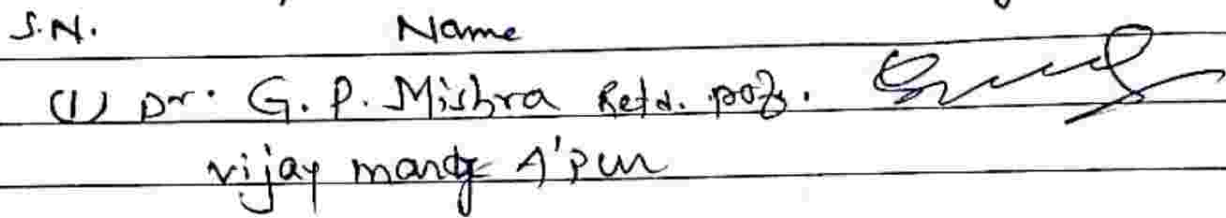 S.N. Name
(1) Dr. G. P. Mishra Retd. prof.
vijay marg A'pur